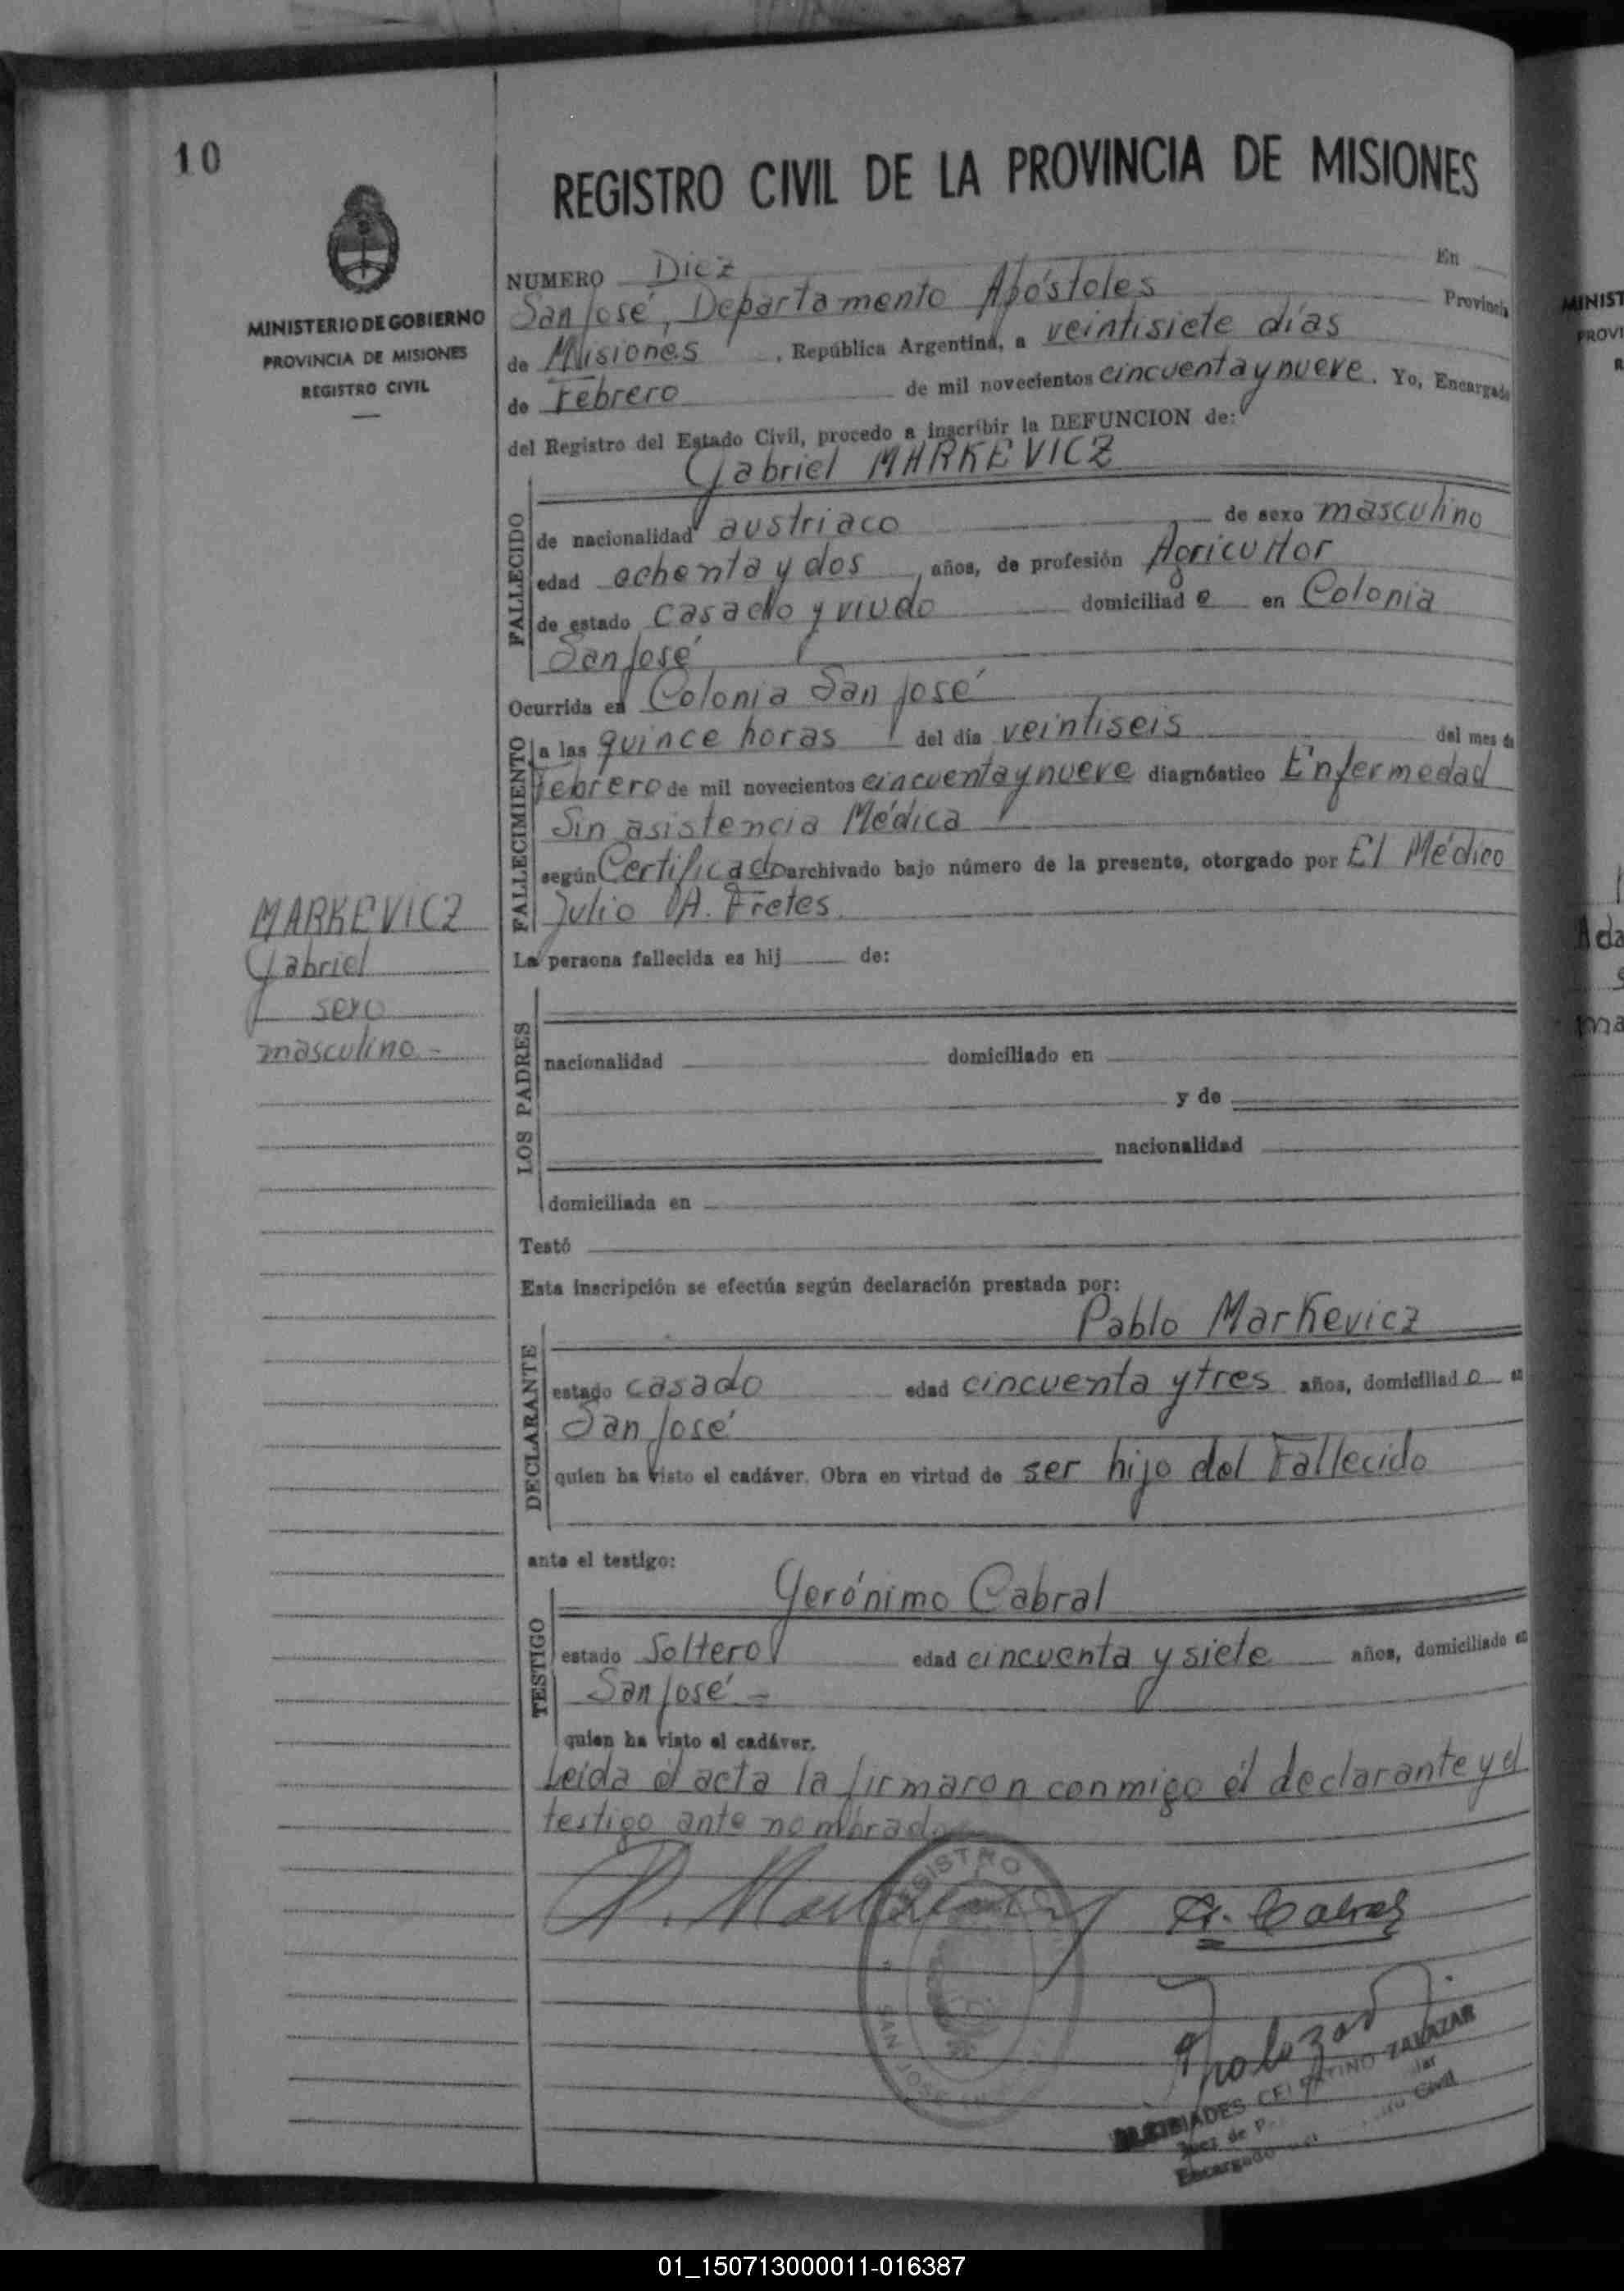 10
MINISTERIO DE GOBIERNO
PROVINCIA DE MISIONES
REGISTRO CIVIL
REGISTRO CIVIL DE LA PROVINCIA DE MISIONES
NUMERO Diez En
San José, Departamento Apóstoles Provincia
de Misiones, República Argentina, a veintisiete días
de Febrero de mil novecientos cincuenta y nueve. Yo, Encargado
del Registro del Estado Civil, procedo a inscribir la DEFUNCION de:
Gabriel MARKEVICZ
FALLECIDO
de nacionalidad austriaco de sexo masculino
edad ochenta y dos años, de profesión Agricultor
de estado casado y viudo domiciliad o en Colonia
San José
Ocurrida en Colonia San José
FALLECIMIENTO
a las quince horas del día veintiseis del mes de
Febrero de mil novecientos cincuenta y nueve diagnóstico Enfermedad
Sin asistencia Médica
según Certificado archivado bajo número de la presente, otorgado por El Médico
Julio A. Fretes
MARKEVICZ
Gabriel
sexo
masculino -
La persona fallecida es hij de:
LOS PADRES
nacionalidad domiciliado en
y de
nacionalidad
domiciliada en
Testó
Esta inscripción se efectúa según declaración prestada por:
Pablo Markevicz
DECLARANTE
estado casado edad cincuenta y tres años, domiciliad o en
San José
quien ha visto el cadáver. Obra en virtud de ser hijo del Fallecido
ante el testigo:
Gerónimo Cabral
TESTIGO
estado Soltero edad cincuenta y siete años, domiciliado en
San José =
quien ha visto el cadáver.
Leída el acta la firmaron conmigo el declarante y el
testigo ante nombrado
REGISTRO
SAN JOSE
G. Cabral
CELESTINO ZALAZAR
Juez de P
Encargado Civil
MINIST
PROVI
R
Ada
ma
01_150713000011-016387